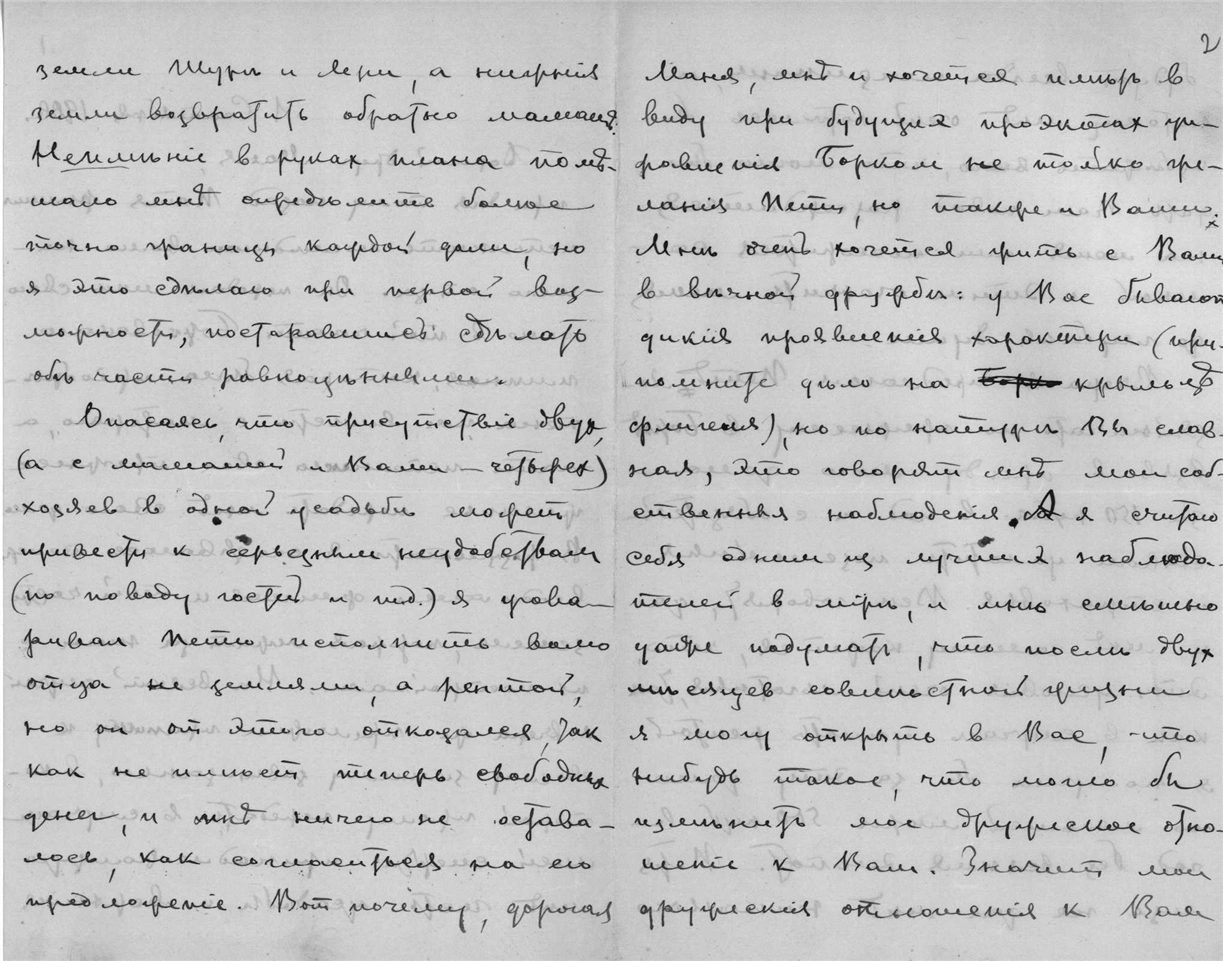 земли Шуры и Лери, а нижнія
земли возвратить обратно мамаше.
Неимѣніе в руках плана помѣ-
шало мнѣ определите более
точно границы каждой доли, но
я это сдѣлаю при первой воз-
можности, постаравшись сдѣлать
обѣ части равноцѣнными.
Опасаясь, что присутствіе двух,
(а с мамашей и Вами – четырех)
хозяев в одной усадьбѣ может
привести к серьезным неудобствам
(по поводу гостей и т.д.) я угова-
ривал Петю исполнить волю
отца не землями, а рентой,
но он от этого отказался, так
как не имѣет теперь свободных
денег, и мнѣ ничего не остава-
лось, как согласиться на его
предложеніе. Вот почему, дорогая
2
Маня, мнѣ и хочется имѣть в
виду при будущих проэктах уп-
равленія Борком не только же-
ланія Пети, но также и Ваши.
х
Мнѣ очень хочется жить с Вами
в вѣчной дружбѣ: у Вас бывают
дикія проявленія характера (при-
помните дѣло на Борко крыльцѣ
флигеля), но по натурѣ Вы слав-
ная, это говорят мнѣ мои соб-
ственныя наблюденія. А я считаю
себя одним из лучших наблюда-
телей в мірѣ, и мнѣ смѣшно
даже подумать, что послѣ двух
мѣсяцев совмѣстной жизни
я могу открыть в Вас, что-
нибудь такое, что могло бы
измѣнить мое дружеское отно-
шеніе к Вам. Значит мои
дружескія отношенія к Вам